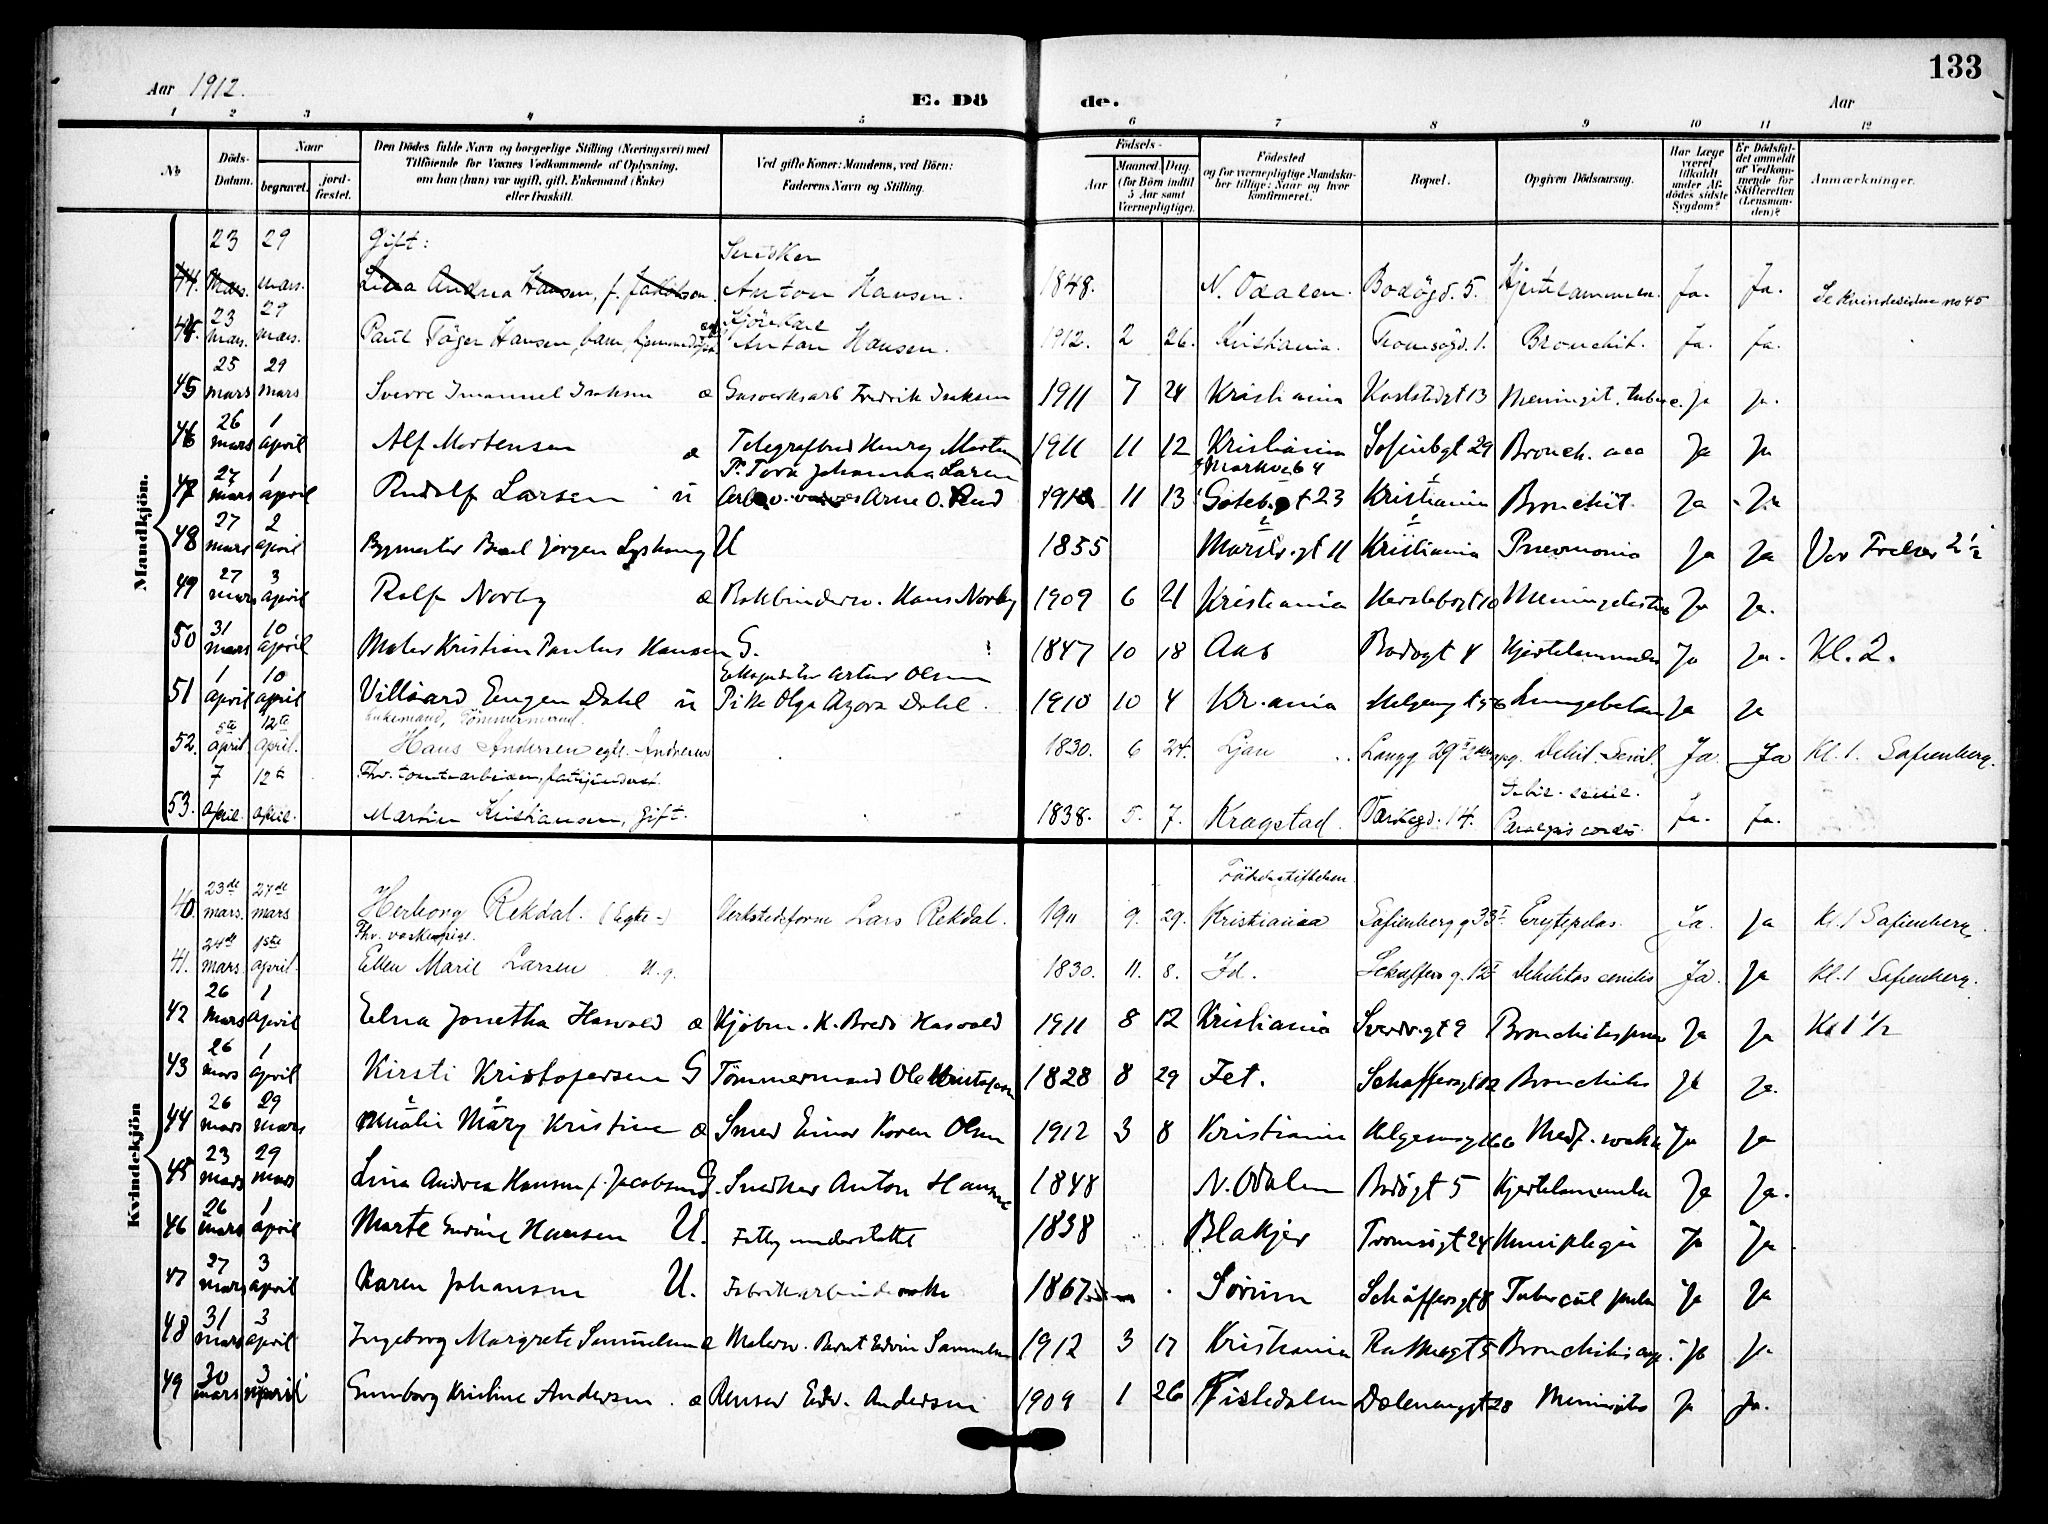 Aar 1912.
E. Dö de.
Aar
133
1 2 3 4 5 6 7 8 9 10 11 12
No
Döds-Datum.
Naar
begravet.
jord-fæstet.
Den Dödes fulde Navn og borgerlige Stilling (Næringsvei) med Tilföiende for Voxnes Vedkommende af Oplysning, om han (hun) var ugift, gift, Enkemand (Enke) eller fraskilt.
Ved gifte Koner: Mandens, ved Börn: Faderens Navn og Stilling.
Födsels-
Aar
Maaned Dag
(for Börn indtil 5 Aar samt Værnepligtige).
Födested og for værnepligtige Mandskaber tillige: Naar og hvor konfirmeret.
Bopæl.
Opgiven Dödsaarsag.
Har Læge været tilkaldt under Afdödes sidste Sygdom?
Er Dödsfaldet anmeldt af Vedkommende for Skifteretten (Lensmanden)?
Anmærkninger.
Mandkjön.
44. 23 Mars. 29 mars. Gift: Lina Andrea Hansen, f. Jacobsen. Snedker Anton Hansen. 1848. N. Odalen. Bodögd. 5. Hjertelammelse. Ja. Ja. Se Kvindesiden no 45
44. 23 mars. 29 mars. Paul Hansen, barn, Kjörekarl Anton Hansen. 1912. 2 26. Kristiania. Tromsögd. 1. Bronchit. Ja. Ja.
45 25 mars 29 mars Sverre Imanuel Isaksen æ Gasverksarb Fredrik Isaksen 1911 7 24 Kristiania Karlstadgt 13 Meningit. tuberc. Ja Ja.
46 26 mars 1 april Alf Mortensen æ Telegrafbud Henry Morten 1911 11 12 Kristiania Sofienbgt 29 Bronch. Ja Ja
47 27 mars 1 april Rudolf Larsen u P. Tora Johanna Larsen Arne O. Rud 11 13 Markv 64 Göteb.gt 23 Kristiania Bronchit. Ja Ja
48 27 mars 2 april Bygmester Jörgen U 1855 gt 11 Kristiania Pneumonia Ja Ja Vor Frelser 2 1/2
49 27 mars 3 april Rolf Norby æ Bokbindersv. Hans Norby 1909 6 21 Kristiania Herslebsgt 10 Ja Ja.
50 31 mars 10 april Maler Kristian Paulus Hansen G. 1847 10 18 Aas Bodögt 4 Hjertelammelse Ja Ja. Kl. 2.
51 1 april 10 april Villiard Eugen Dahl u Ekspeditör Artur Olsen Pike Olga Dahl. 1910 10 4 Kr.ania Helgensgt 56 Ja Ja
52. 5te april 12te april. Enkemand, Tömmermand. Hans Andersen egtl. Andresen 1830. 6 24. Ljan Langg 29 Debil. Senil. Ja. Ja Kl. 1. Sofienberg.
53. 7 april. 12te april. Fhv. tomtearbeider, fattigunderst. Martin Kristiansen, Gift. 1838. 5. 7. Kragstad. gd. 14. Debil. senil. Paralysis cordis. Ja. Ja.
Kvindekjön
40. 23de mars. 27de mars Herborg Rekdal. (Egte.) Verkstedsform Lars Rekdal. 1911 9. 29. Födselsstiftelsen. Kristiania Sofienberg g 33 I Erysipelas. Ja. Ja Kl. 1 Sofienberg.
41. 24de mars. 1ste april. Fhv. vaskepige. Ellen Marie Larsen u.g. 1830. 11. 8. Id. Schaffers g. 12 I Debilitas senilis Ja. Ja Kl. 1 Sofienberg.
42 26 mars 1 april Elna Jonetha Hasvold æ Kjöbm. K. Brede Hasvold 1911 8 12 Kristiania Sverdr.gt 9 Ja Ja Kl 1 1/2
43 26 mars 1 april Kirsti Kristofersen G Tömmermand Ole Kristofersen 1828 8 29 Fet. Schaffersgt 12 Bronchitis Ja Ja.
44 26 mars 29 mars Amalie Mary Kristine æ Smed Einar Koren Olsen 1912 3 8 Kristiania Helgensgt 66 Medf. svakh Ja Ja
45 23 mars 29 mars Lina Andrea Hansen f. Jacobsen G. Snedker Anton Hansen 1848 N. Odalen Bodögt 5 Hjertelammelse Ja Ja.
46 26 mars 1 april Marte Hansen U. Fattigunderstöttet 1838 Blakjer Tromsögt 24 Hemiplegia Ja Ja
47 27 mars 3 april Karen Johansen U. Fabrikarbeiderske 1867 Sörum Schäffersgt 8 Tubercul pulm Ja Ja
48 31 mars 3 april Ingeborg Margrete Samuelsen æ Malersv. Bernt Edvin Samuelsen 1912 3 17 Kristiania gt 5 Bronchitis Ja Ja.
49 30 mars 3 april Gunborg Kristine Andersen. æ Renser Edv. Andersen 1909 1 26 Tistedalen Dælenenggt 28 Meningitis Ja Ja.